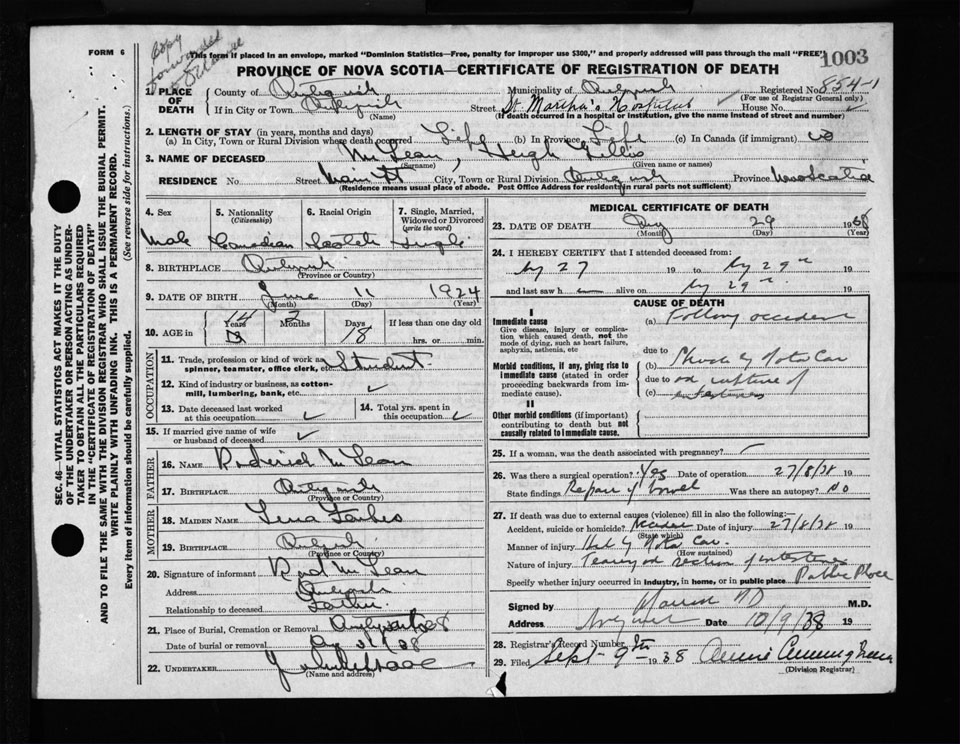 Copy
forwarded
FORM 6
This form if placed in an envelope, marked "Dominion Statistics—Free, penalty for improper use $300," and properly addressed will pass through the mail "FREE"
1003
PROVINCE OF NOVA SCOTIA—CERTIFICATE OF REGISTRATION OF DEATH
1. PLACE OF DEATH
County of Antigonish Municipality of Antigonish Registered No. 854-1
(For use of Registrar General only)
If in City or Town Antigonish Street St. Martha's Hospital House No.
(Name) (If death occurred in a hospital or institution, give the name instead of street and number)
2. LENGTH OF STAY (in years, months and days)
(a) In City, Town or Rural Division where death occurred Life (b) In Province Life (c) In Canada (if immigrant)
3. NAME OF DECEASED McLean, Hugh Gillis
(Surname) (Given name or names)
RESIDENCE No. Street Main St City, Town or Rural Division Antigonish Province Nova Scotia
(Residence means usual place of abode. Post Office Address for residents in rural parts not sufficient)
4. Sex 5. Nationality (Citizenship) 6. Racial Origin 7. Single, Married, Widowed or Divorced (write the word)
Male Canadian Scotch Single
8. BIRTHPLACE Antigonish
(Province or Country)
9. DATE OF BIRTH June 11 1924
(Month) (Day) (Year)
10. AGE in 14 Years 2 Months 18 Days If less than one day old
hrs. or min.
OCCUPATION
11. Trade, profession or kind of work as spinner, teamster, office clerk, etc. Student
12. Kind of industry or business, as cotton-mill, lumbering, bank, etc. ✓
13. Date deceased last worked at this occupation ✓ 14. Total yrs. spent in this occupation ✓
15. If married give name of wife or husband of deceased ✓
FATHER
16. NAME Roderick McLean
17. BIRTHPLACE Antigonish
(Province or Country)
MOTHER
18. MAIDEN NAME Lena Forbes
19. BIRTHPLACE Antigonish
(Province or Country)
20. Signature of informant Rod McLean
Address Antigonish
Relationship to deceased Father
21. Place of Burial, Cremation or Removal Antigonish
Date of burial or removal Aug 31 / 38
22. UNDERTAKER
(Name and address)
MEDICAL CERTIFICATE OF DEATH
23. DATE OF DEATH Aug 29 1938
(Month) (Day) (Year)
24. I HEREBY CERTIFY that I attended deceased from:
Aug 27 19 to Aug 29th 19
and last saw h alive on Aug 29th 19
CAUSE OF DEATH
I
Immediate cause
Give disease, injury or complication which caused death, not the mode of dying, such as heart failure, asphyxia, asthenia, etc
(a) Following accident
due to
Morbid conditions, if any, giving rise to immediate cause (stated in order proceeding backwards from immediate cause).
(b) Struck by Motor Car
due to and rupture of
(c) intestines
II
Other morbid conditions (if important) contributing to death but not causally related to immediate cause.
25. If a woman, was the death associated with pregnancy?
26. Was there a surgical operation? Yes Date of operation 27/8/38 19
State findings Repair of bowel Was there an autopsy? No
27. If death was due to external causes (violence) fill in also the following:—
Accident, suicide or homicide? Accident Date of injury 27/8/38 19
(State which)
Manner of injury Hit by Motor Car.
(How sustained)
Nature of injury Tearing and section of intestines
Specify whether injury occurred in industry, in home, or in public place Public Place
Signed by M.D. M.D.
Address Date 10/9/38 19
28. Registrar's Record Number
29. Filed Sept 9th 1938 Annie Cunningham
(Division Registrar)
SEC. 46—VITAL STATISTICS ACT MAKES IT THE DUTY
OF THE UNDERTAKER OR PERSON ACTING AS UNDER-
TAKER TO OBTAIN ALL THE PARTICULARS REQUIRED
IN THE "CERTIFICATE OF REGISTRATION OF DEATH"
AND TO FILE THE SAME WITH THE DIVISION REGISTRAR WHO SHALL ISSUE THE BURIAL PERMIT.
WRITE PLAINLY WITH UNFADING INK. THIS IS A PERMANENT RECORD.
Every item of information should be carefully supplied. (See reverse side for instructions.)